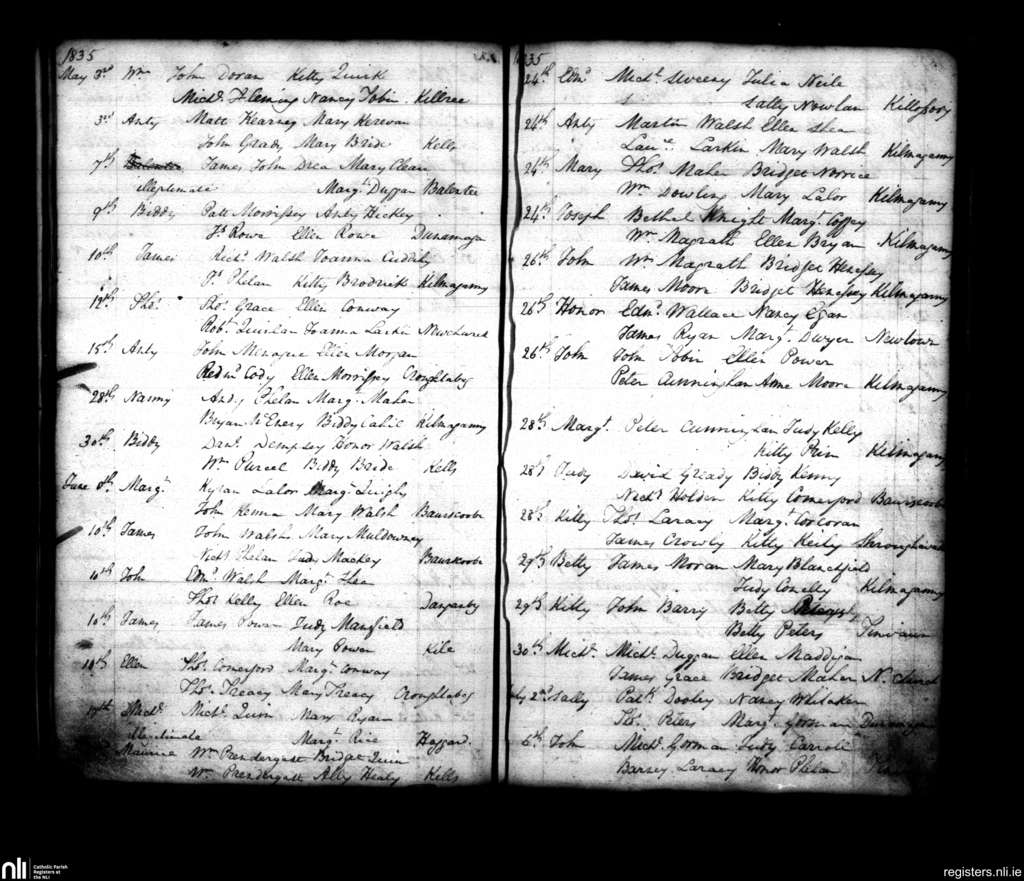 1835
May 3rd Wm John Doran Kitty Quirk
Michl. Fleming Nancy Tobin Killree
3rd Anty Matt Kearney Mary Kerwan
John Grady Mary Bride Kells
7th James John Drea Mary Clear
illegitimate Margt. Duggan Balentee
9th Biddy Patt Morrissey Anty Hickey
Js Rowe Ellen Rowe Dunamagan
10th James Richd. Walsh Joanna Cuddihy
Ps. Phelan Kitty Brodrick Kilmaganny
12th Thos. Thos. Grace Ellen Conway
Robt. Quinlan Joanna Larkin Newchurch
15th Anty John Elies Morgan
Redmd. Cody Ellen Morrissey Croughtabeg
28th Nanny Andy Phelan Margt. Maher
Bryan McEnery Biddy Cahil Kilmaganny
30th Biddy Danl. Dempsey Honor Walsh
Wm Purcel Biddy Bride Kells
June 8th Margt. Kyran Lalor Margt. Quigly
John Kenna Mary Walsh Bauscorbe
10th James John Walsh Mary Muldowney
Nichs. Phelan Judy Mackey Bauscorbe
10th John Edmd. Walsh Margt. Shea
Thos. Kelly Ellen Roe
10th James James Power Judy Mansfield
Mary Power Kile
14th Ellen Thos. Comerford Margt. Conway
Thos. Treacy Mary Treacy Croughtabeg
17th Michl. Michl. Quin Mary Ryan
illegitimate Margt. Rice Haggard.
Maurice Wm Prendergast Bridget Quin
Wm Prendergast Ally Healy Kells
1835
24th Edmd. Michl. Sweeny Julia Neile
Salty Nowlan Killosory
24th Anty Martin Walsh Ellen Shea
Laue. Larkin Mary Walsh Kilmaganny
24th Mary Thos. Maher Bridget Norrice
Wm Dowling Mary Lalor Kilmaganny
24th Joseph Bethel Knight Margt. Coffey
Wm Magrath Ellen Bryan Kilmaganny
26th John Wm Magrath Bridget Henessey
James Moore Bridget Henessey Kilmaganny
26th Honor Edmd. Wallace Nancy Egan
James Ryan Margt. Dwyer Newtown
26th John John Tobin Ellen Power
Peter Cunningham Anne Moore Kilmaganny
28th Margt. Peter Cunningham Judy Kelly
Kitty Prim Kilmaganny
28th Judy David Gready Biddy Kenny
Nichs. Holden Kitty Comerford Bauscorbe
28th Kitty Thos. Laracy Margt. Corcoran
James Crowly Kitty Keily
29th Betty James Moran Mary Blanchfield
Judy Conelly Kilmaganny
29th Kitty John Barry Betty
Betty Peters
30th Michl. Michl. Duggan Ellen Maddigan
James Grace Bridget Maher N. Church
July 2nd Sally Patk. Dooley Nancy Whitaker
Thos. Peters Margt. Gorman Dunamagan
6th John Michl. Gorman Judy Carroll
Barney Laracy Honor Phelan
nli
Catholic Parish
Registers at
the NLI
registers.nli.ie